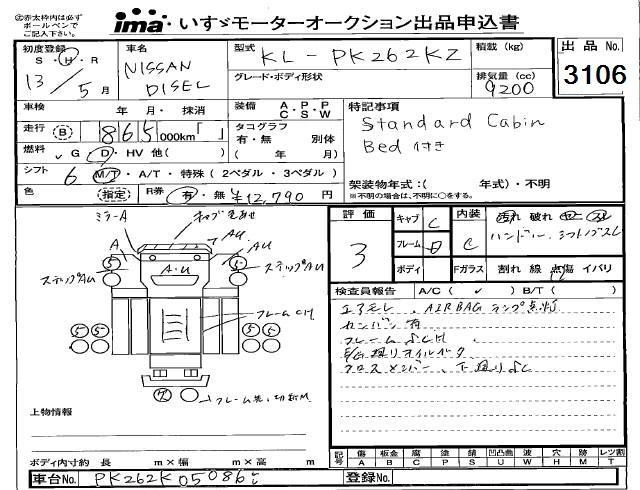 ②赤太枠内は必ず
ボールペンで
ご記入下さい。
ima いすゞモーターオークション出品申込書
初度登録 車名 型式 KL-PK262KZ 積載(kg) 出品No.
S・H・R NISSAN DISEL グレード・ボディ形状 排気量(cc) 3106
13/5月 9200
車検 年 月・抹消 装備 A・P・P
C・S・W 特記事項
走行 B 865 000km「 」 タコグラフ Standard Cabin
有・無 別体 Bed付き
燃料 G・D・HV 他( ) ( 年 月)
シフト 6 M/T・A/T・特殊(2ペダル・3ペダル) 架装物年式:( 年式)・不明
色 (指定) R券 有・無 ¥12,790円 ※不明の場合は、不明に○をする。
ミラーA キャブ色あせ
評価 3 キャブ C 内装 C 汚れ 破れ
AU
A AU フレーム ハンドル、シフトノブスレ
S S
ステップAU A・U ステップAU ボディ Fガラス 割れ 線 点傷 イバリ
検査員報告 A/C( ✓ ) B/T( )
エアモレ、AIRBAGランプ点灯
カンバン有
フレーム CM
フレームSCM
5 5 5 5
クロスメンバー、下廻りSC
7 フレーム先切断M
上物情報
ボディ内寸約 長 m×幅 m×高 m
記号 傷 板金 腐 塗 錆 凹凸曲 波 穴 跡 レツ割
A B C P S U W H M T
車台No. PK262K05086 登録No.